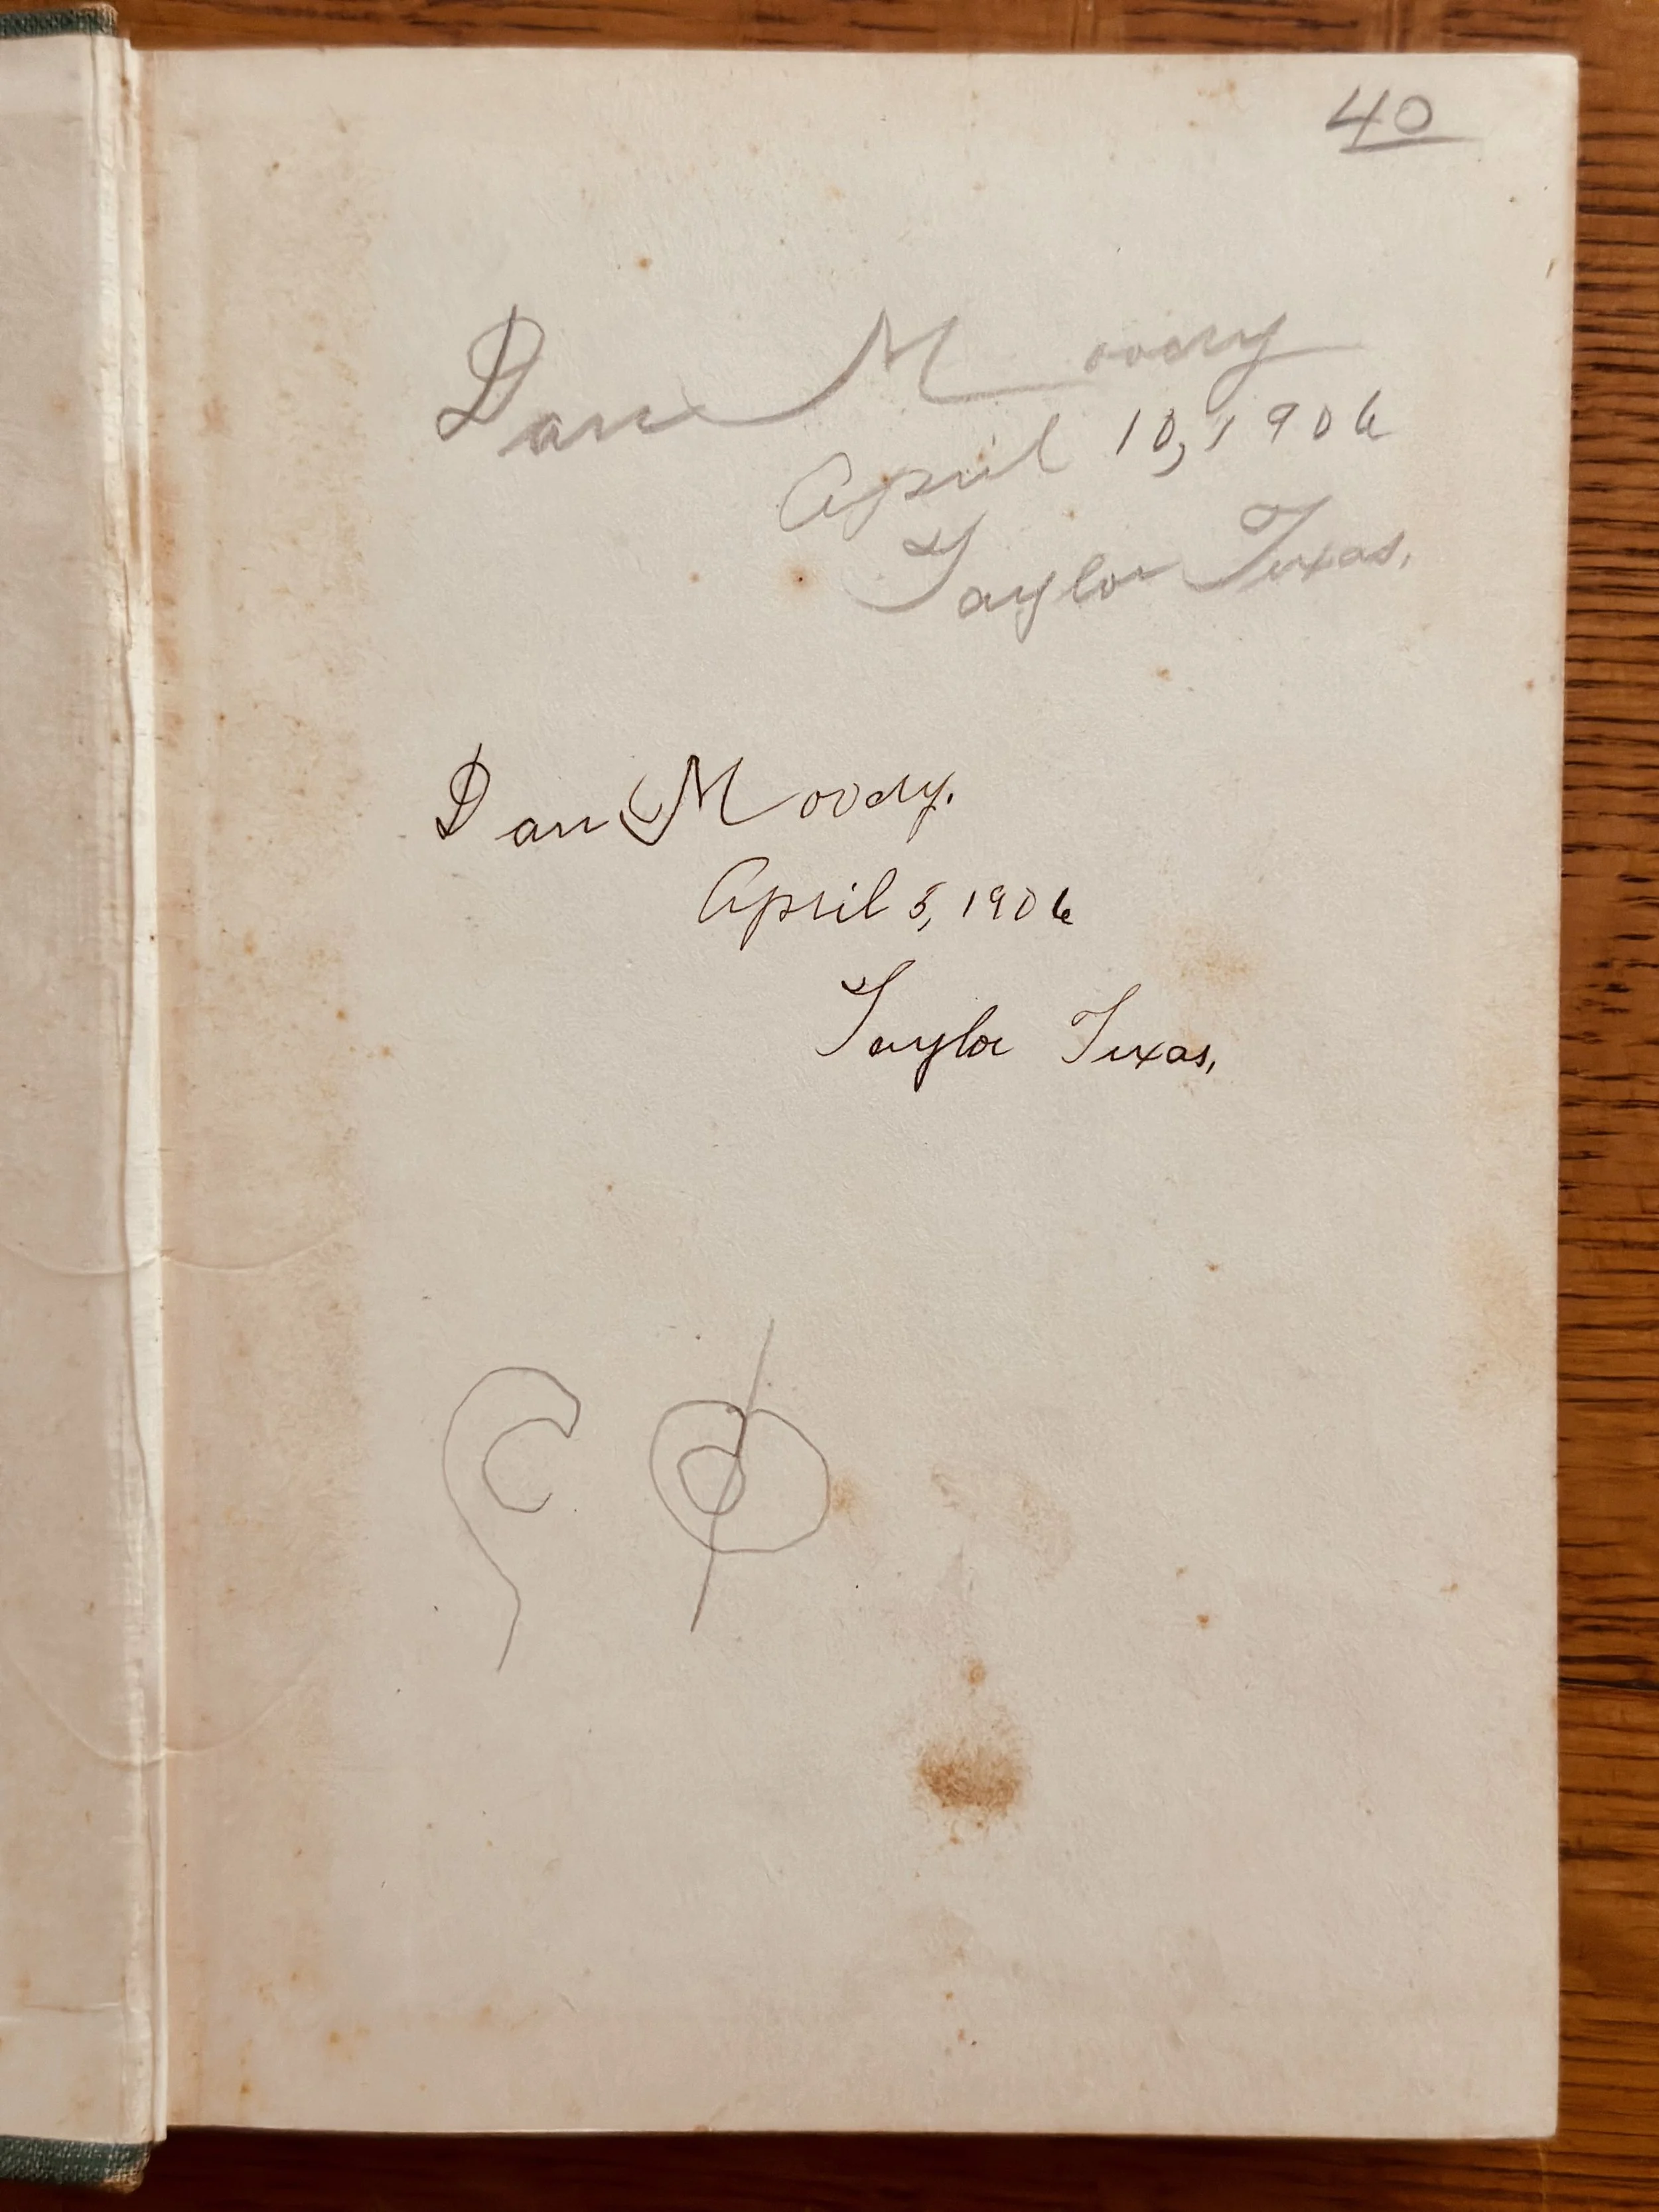 40
Dan Moody
April 10, 1906
Taylor Texas.
Dan Moody.
April 5, 1906
Taylor Texas.